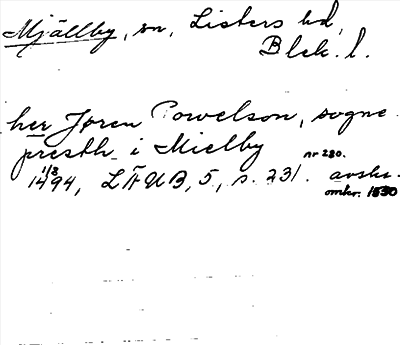 Mjällby, sn, Listers hd,
Blek. l.
her Jøren Powelson, sogne
presth i Mielby
nr 280.
11/8 1494, LÄUB, 5, s. 231. avskr.
omkr. 1550